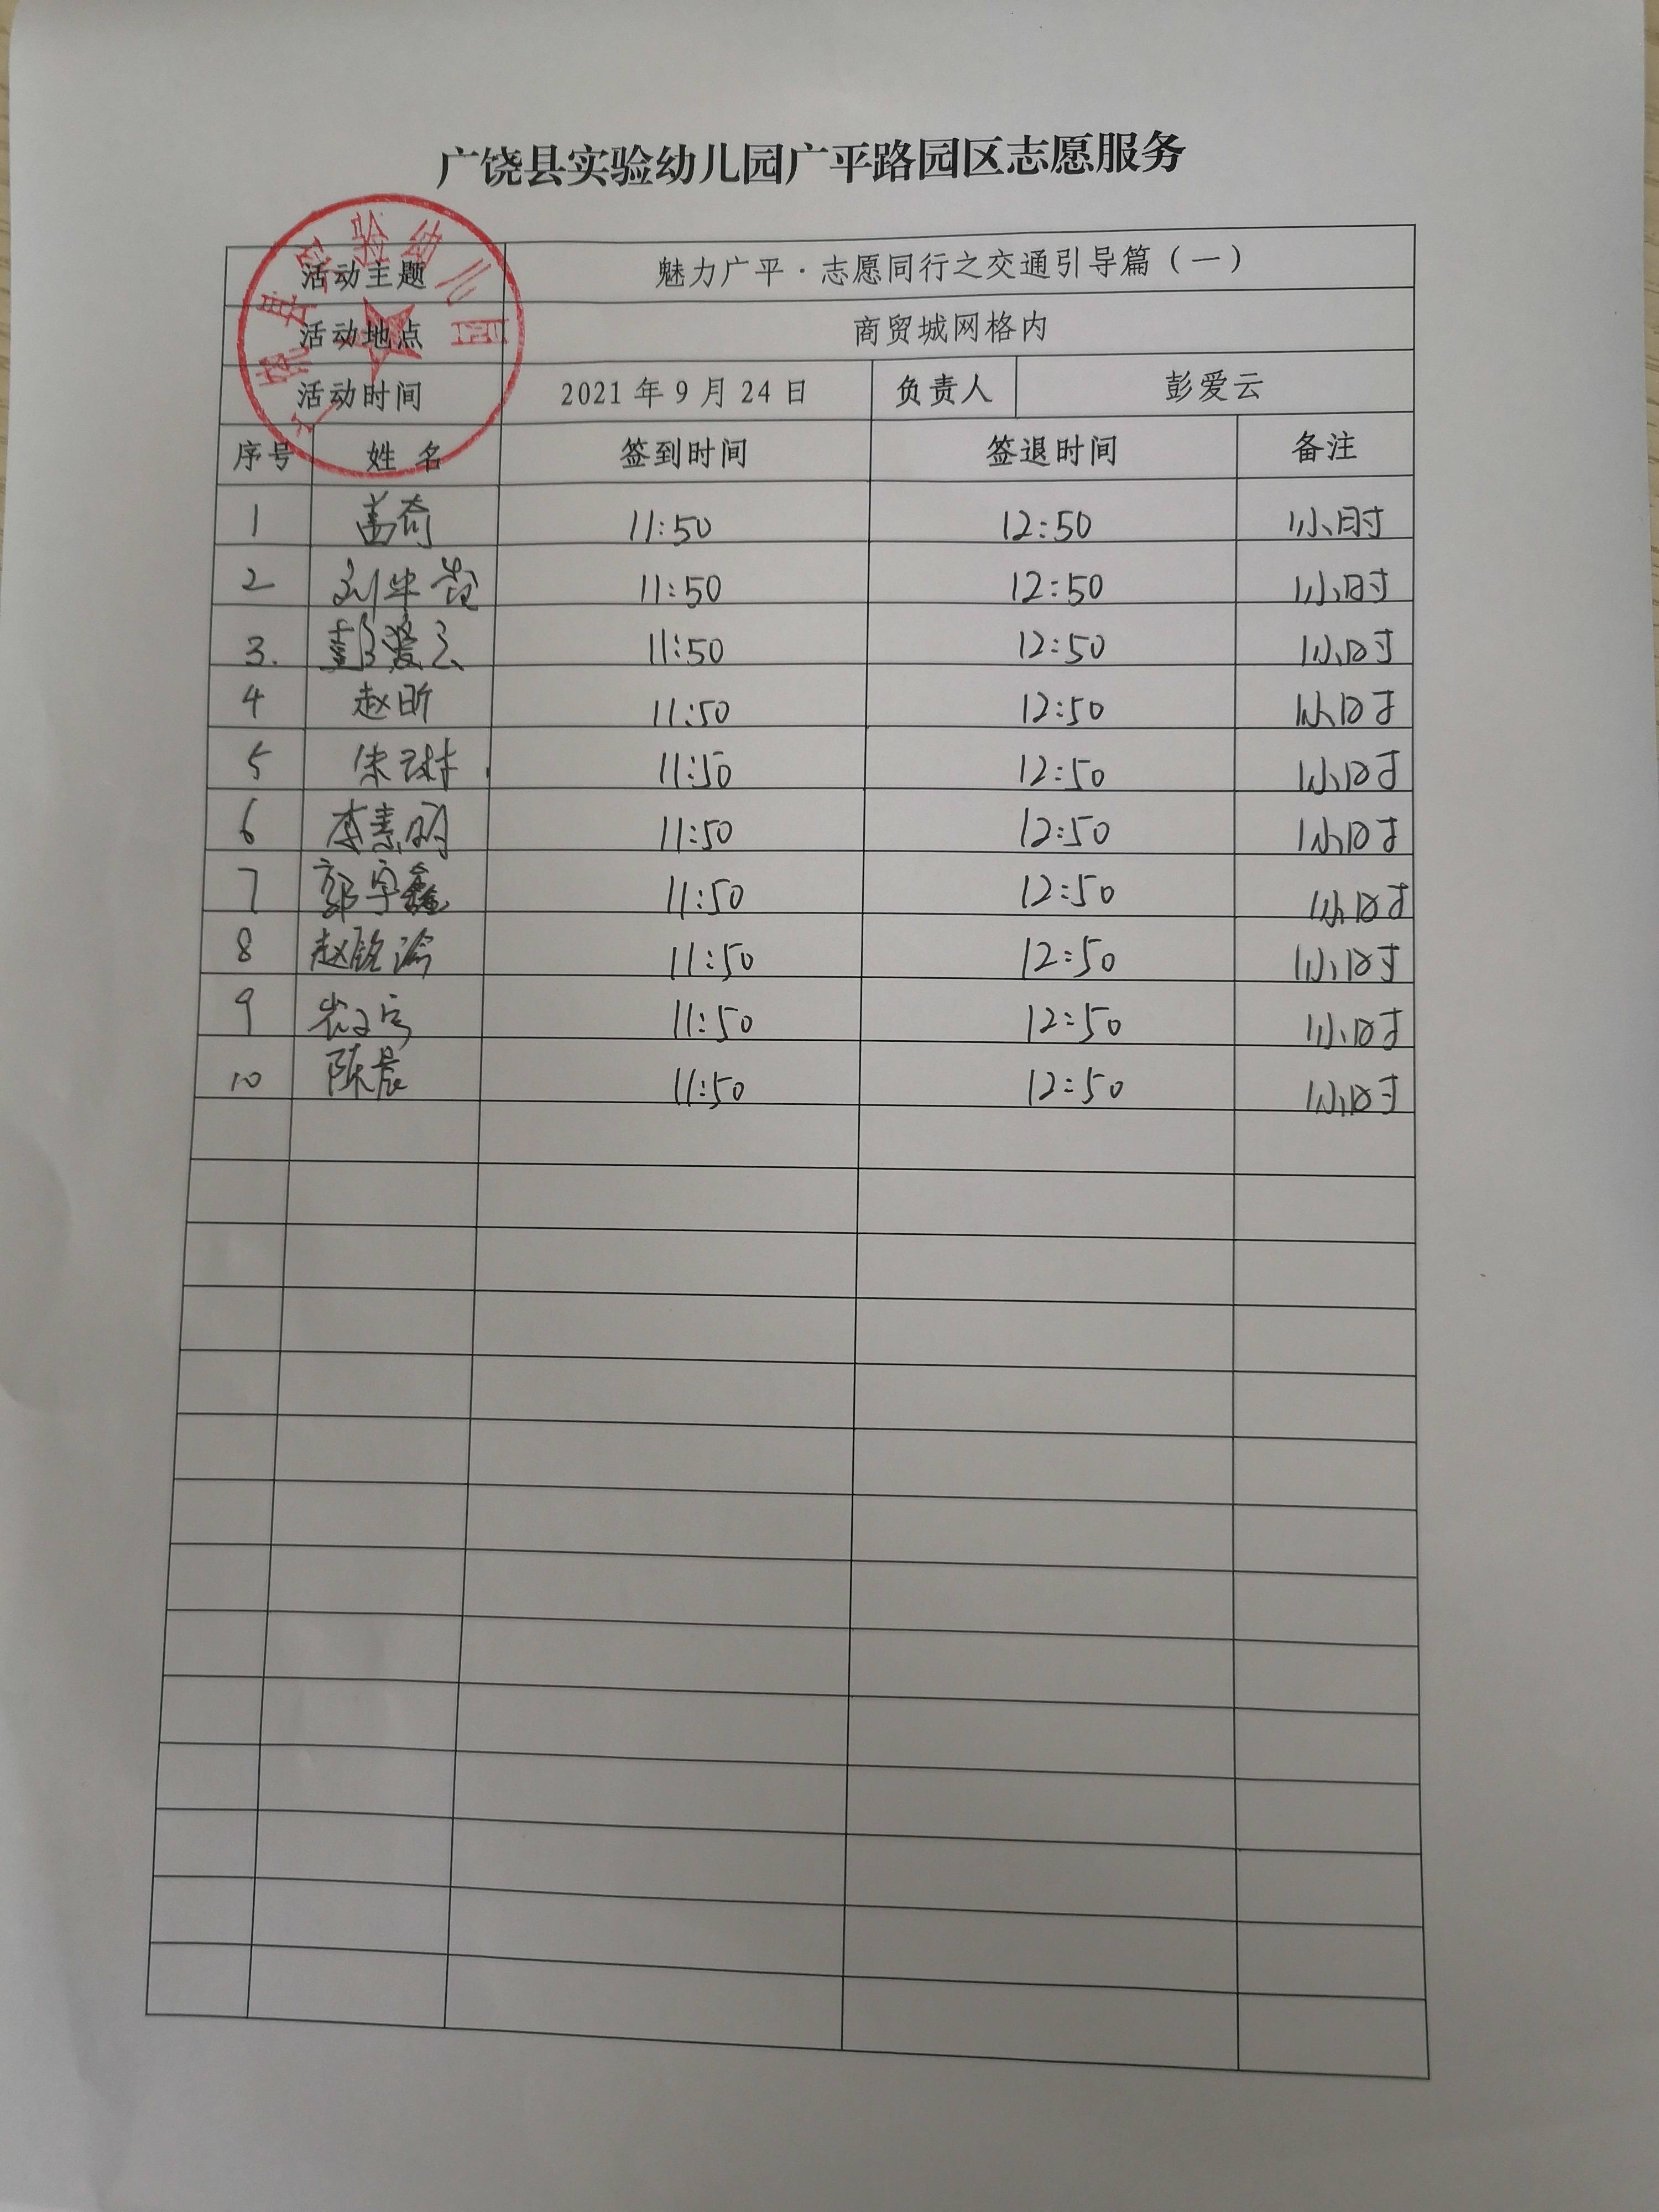 广饶县实验幼儿园广平路园区志愿服务
广饶县实验幼儿园
活动主题 魅力广平·志愿同行之交通引导篇（一）
活动地点 商贸城网格内
活动时间 2021年9月24日 负责人 彭爱云
序号 姓名 签到时间 签退时间 备注
1 盖奇 11:50 12:50 1小时
2 11:50 12:50 1小时
3. 彭爱云 11:50 12:50 1小时
4 赵昕 11:50 12:50 1小时
5 朱琳 11:50 12:50 1小时
6 李素明 11:50 12:50 1小时
7 郭宇鑫 11:50 12:50 1小时
8 11:50 12:50 1小时
9 11:50 12:50 1小时
10 陈晨 11:50 12:50 1小时